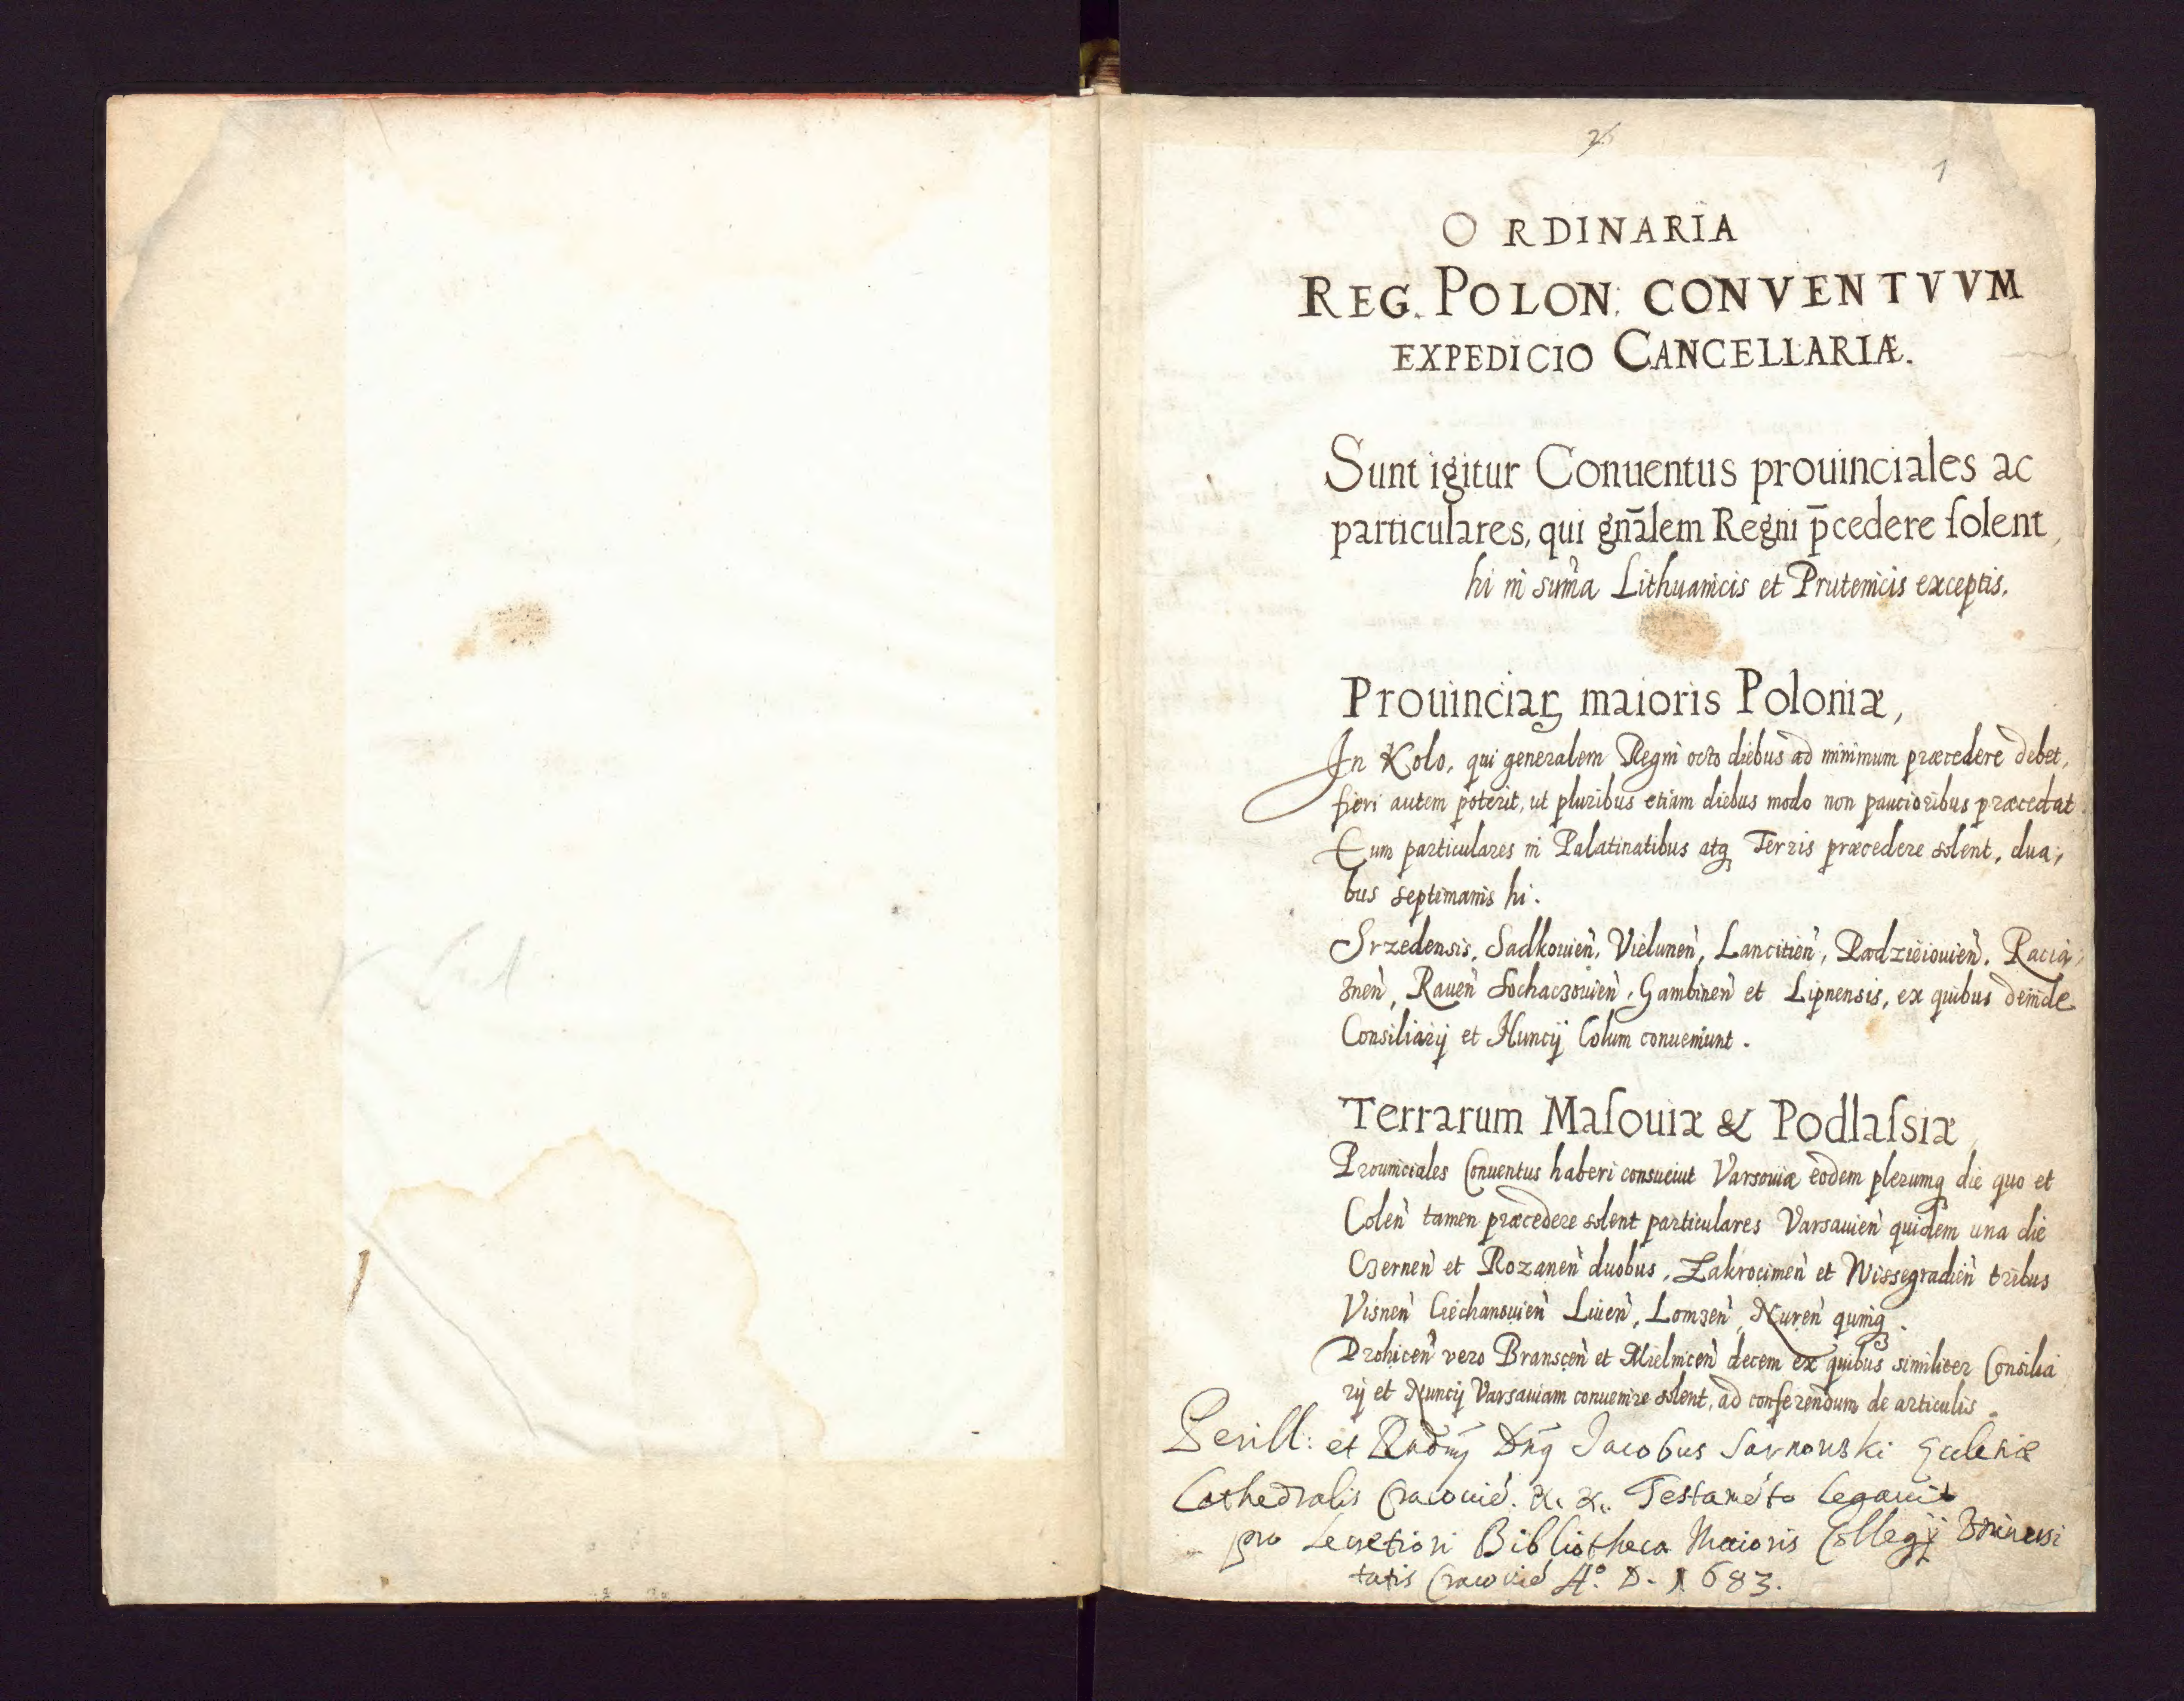 26
1
ORDINARIA
REG. POLON: CONVENTVVM
EXPEDICIO CANCELLARIÆ.
Sunt igitur Conuentus prouinciales ac
particulares, qui gnãlem Regni p̄cedere solent,
hi in sum̃a Lithuanicis et Prutenicis exceptis.
Prouinciaꝝ maioris Poloniæ,
In Kolo, qui generalem Regni octo diebus ad minimum præcedere debet,
fieri autem poterit, ut pluribus etiam diebus modo non paucioribus præcedat.
Eum particulares in Palatinatibus atqꝫ Terris præcedere solent, dua,
bus septimanis hi.
Srzedensis, Sadkouien̄, Vielunen̄, Lancitien̄, Radzieiouien̄, Racia,
znen̄, Rauen̄ Sochaczouien̄, Gambinen̄ et Lipnensis, ex quibus deinde
Consiliarij et Nuncij Colum conueniunt.
Terrarum Masouiæ & Podlassiæ,
Prouinciales Conuentus haberi consueiut Varsouiæ eodem plerumqꝫ die quo et
Colen̄ tamen præcedere solent particulares Varsauien̄ quidem una die
Czernen̄ et Rozanen̄ duobus, Zakrocimen̄ et Wissegradien̄ tribus
Visnen̄ Ciechanouien̄ Liuen̄, Lomzen̄, Nuren̄ quinqꝫ.
Drohicen̄ vero Branscen̄ et Mielnicen̄ decem ex quibus similiter Consilia
rij et Nuncij Varsauiam conuenire solent, ad conferendum de articulis.
Perill: et Rndūs Dn̄s Jacobus Sarnowski Ecclesiæ
Cathedralis Cracouien̄. &. &. Testamēto legauit
pro Secretiori Bibliotheca Maioris Collegij Vniuersi
tatis Cracouien̄ Aº. D. 1683.